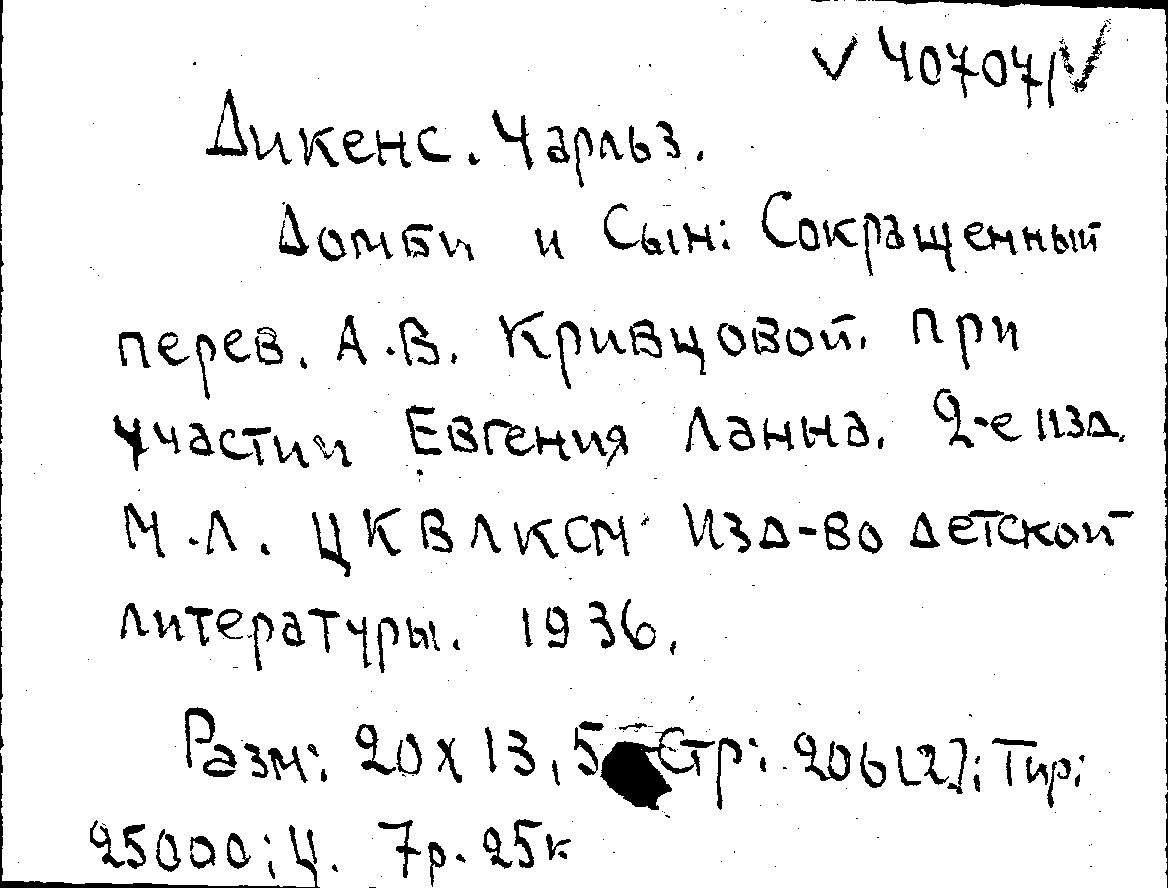 √ 40707/√
Дикенс. Чарльз.
Домби и Сын: Сокращенный
перев. А.В. Кривцовой. при
участии Евгения Ланна. 2-е изд.
М.-Л. ЦКВЛКСМ Изд-во детской
литературы. 1936.
Разм: 20 х 13,5 Стр: 206[2]; Тир:
25000; Ц. 7р. 25к